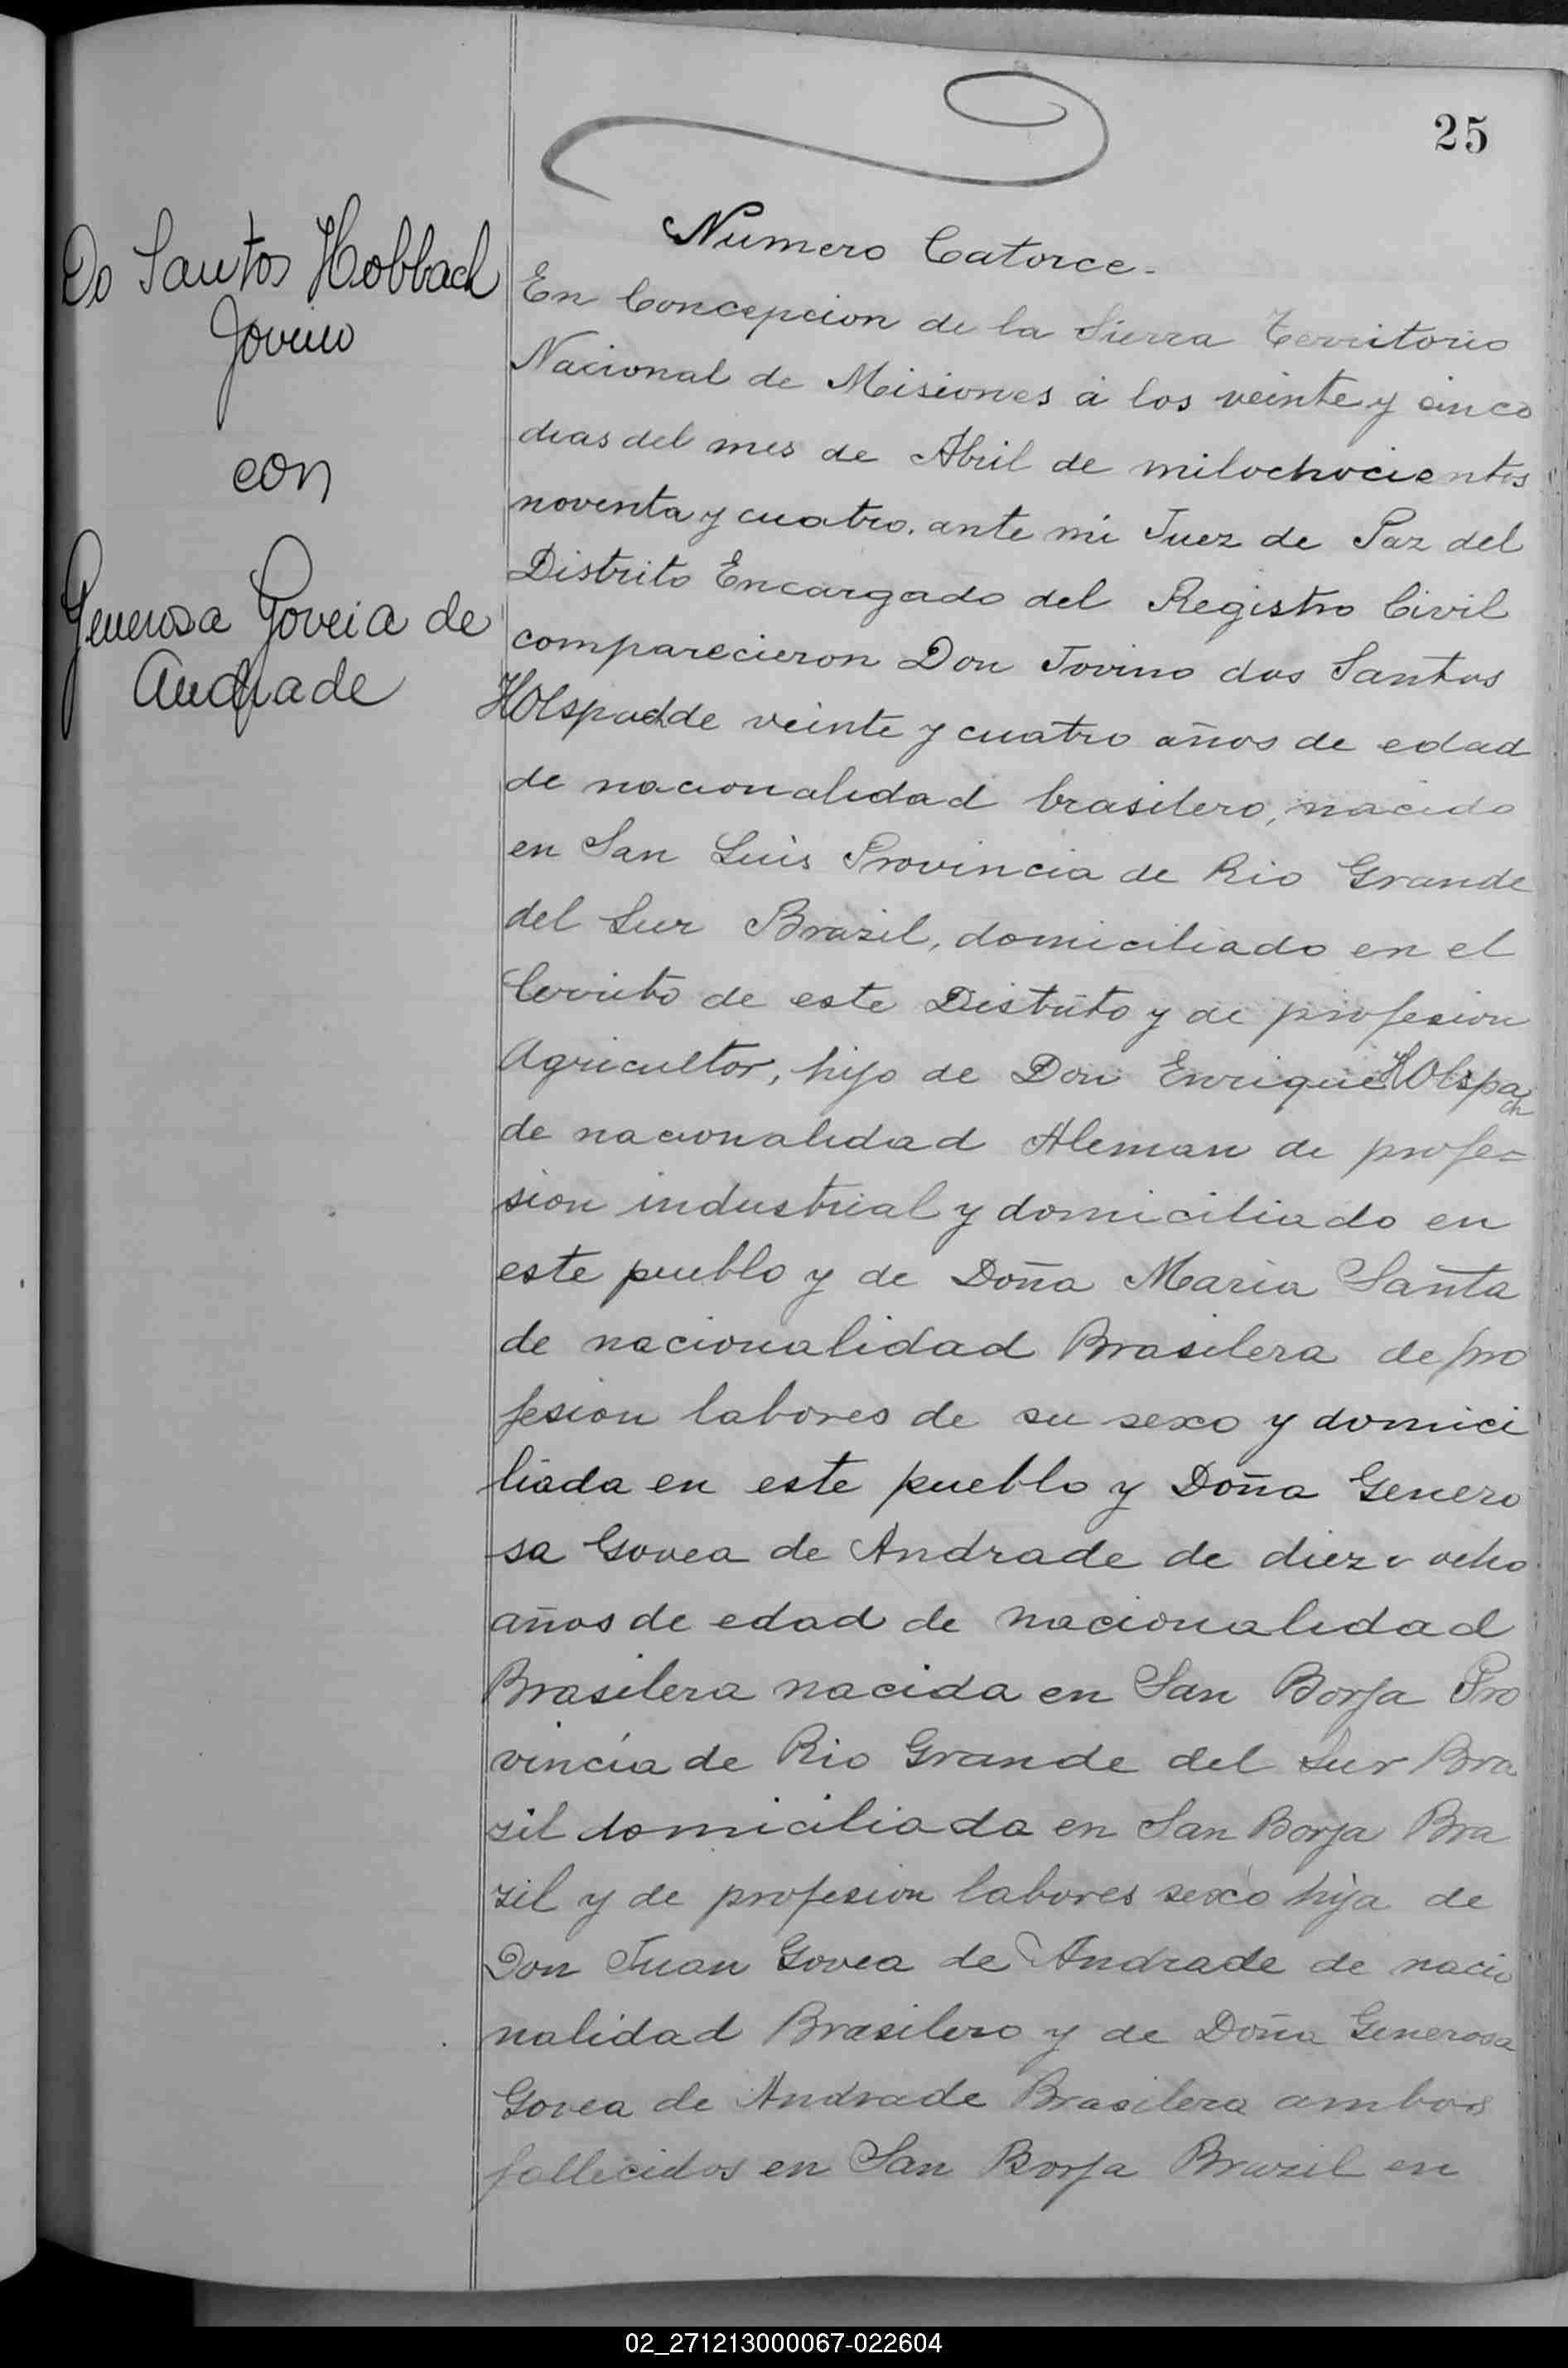 25
Do Santos Hobbach
Jovino
con
Generosa Goveia de
Andrade
Numero Catorce.
En Concepcion de la Sierra Territorio
Nacional de Misiones á los veinte y cinco
dias del mes de Abril de milochocientos
noventa y cuatro. ante mi Juez de Paz del
Distrito Encargado del Registro Civil
comparecieron Don Jovino dos Santos
HOlspach de veinte y cuatro años de edad
de nacionalidad brasilero, nacido
en San Luis Provincia de Rio Grande
del Sur Brazil, domiciliado en el
Cerrito de este Distrito y de profesion
Agricultor, hijo de Don Enrique HOlspach
de nacionalidad Aleman de profe=
sion industrial y domiciliado en
este pueblo y de Doña Maria Santa
de nacionalidad Brasilera de pro
fesion labores de su sexo y domici
liada en este pueblo y Doña Genero
sa Govea de Andrade de diez y ocho
años de edad de nacionalidad
Brasilera nacida en San Borja Pro
vincia de Rio Grande del Sur Bra
zil domiciliada en San Borja Bra
zil y de profesion labores sexo hija de
Don Juan Govea de Andrade de nacio
nalidad Brasilero y de Doña Generosa
Govea de Andrade Brasilera ambos
fallecidos en San Borja Brazil en
02_271213000067-022604